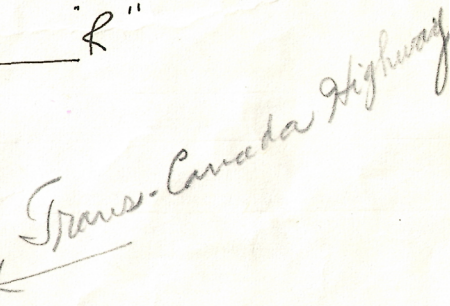 "R"
Trans-Canada Highway